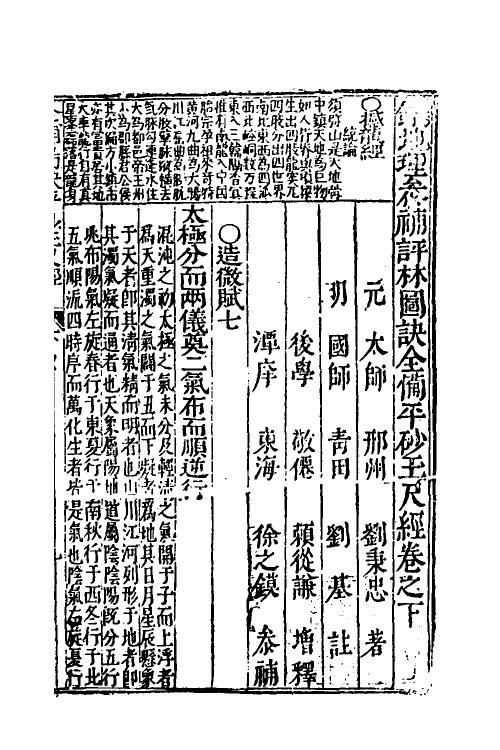 刻地理叅補評林圖訣全備平砂玉尺經卷之下
元 太師 邢州 劉秉忠 著
明 國師 青田 劉 基 註
後學 敬僊 賴從謙 增釋
潭庠 東海 徐之鏌 叅補
○造微賦七
太極分而兩儀奠二氣布而順逆行
混沌之初太極之氣未分及輕清之氣開于子而上浮者
爲天重濁之氣闢于丑而下凝者爲地其日月星辰懸象
于天者即其清氣精而明者也山川江河列形于地者即
其濁氣凝而逼者也天象屬陽地道屬陰陰陽旣分五行
兆布陽氣左旋春行于東夏行于南秋行于西冬行于北
五氣順流四時序而萬化生者皆是氣也陰氣右旋夏行
○撼龍經
統論
須弥山是天地骨
中鎮天地爲巨物
如人背脊與項梁
生出四肢龍突兀
四肢分出四世界
南北東西爲四派
西北崆峒數万程
東入三韓隔杳冥
惟有南龍入中國
胎宗孕祖來奇特
黃河九曲爲大腸
川江屈曲爲膀胱
分肢擘脉縱橫去
氣血勾連逢水住
大爲都邑帝王州
小爲郡縣君公侯
其次偏方小鎮市
亦有富貴居其地